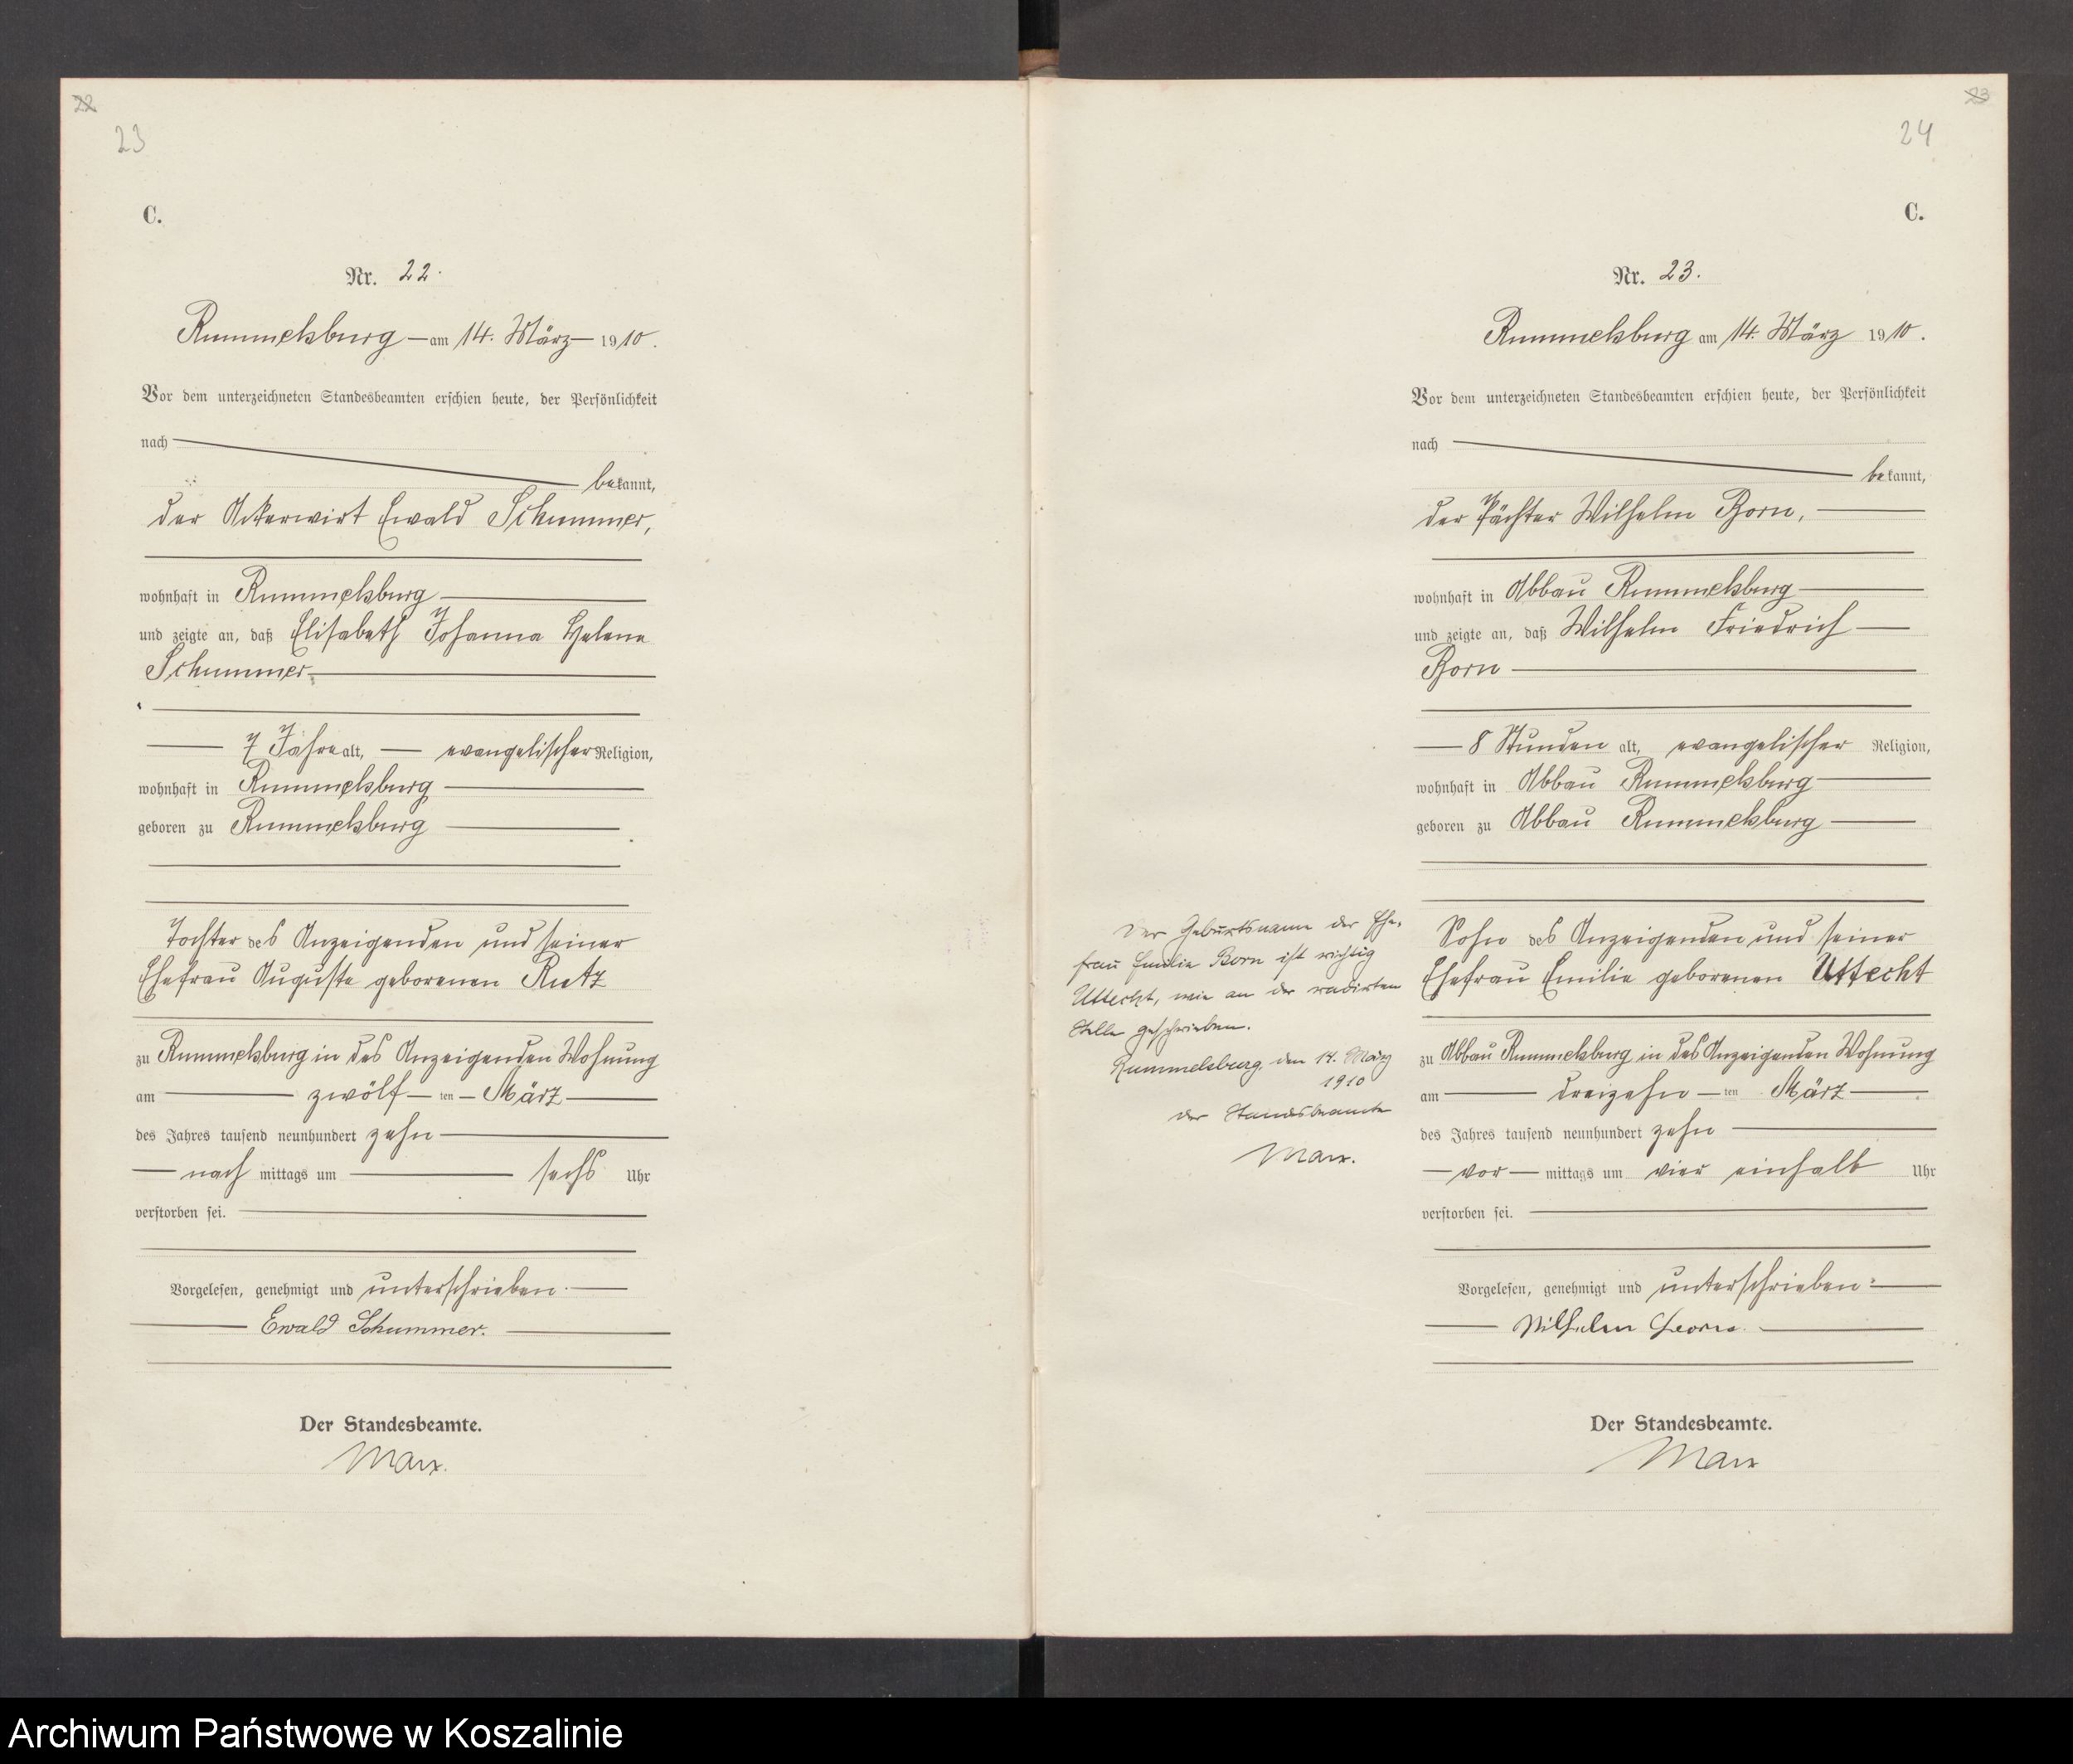 22
23
C.
Nr. 22.
Rummelsburg am 14. März 1910.
Vor dem unterzeichneten Standesbeamten erschien heute, der Persönlichkeit
nach
bekannt,
der Ackerwirt Ewald Schummer,
wohnhaft in Rummelsburg
und zeigte an, daß Elisabeth Johanna Helene
Schummer
7 Jahre alt, evangelischer Religion,
wohnhaft in Rummelsburg
geboren zu Rummelsburg
Tochter des Anzeigenden und seiner
Ehefrau Auguste geborenen Rutz
zu Rummelsburg in des Anzeigenden Wohnung
am zwölf ten März
des Jahres tausend neunhundert zehn
nach mittags um sechs Uhr
verstorben sei.
Vorgelesen, genehmigt und unterschrieben.
Ewald Schummer.
Der Standesbeamte.
Marx.
23
24
C.
Nr. 23.
Rummelsburg am 14. März 1910.
Vor dem unterzeichneten Standesbeamten erschien heute, der Persönlichkeit
nach
bekannt,
der Pächter Wilhelm Born,
wohnhaft in Abbau Rummelsburg
und zeigte an, daß Wilhelm Friedrich
Born
8 Stunden alt, evangelischer Religion,
wohnhaft in Abbau Rummelsburg
geboren zu Abbau Rummelsburg
Sohn des Anzeigenden und seiner
Ehefrau Emilie geborenen Uttecht
zu Abbau Rummelsburg in des Anzeigenden Wohnung
am dreizehn ten März
des Jahres tausend neunhundert zehn
vor mittags um vier einhalb Uhr
verstorben sei.
Vorgelesen, genehmigt und unterschrieben.
Wilhelm Born.
Der Standesbeamte.
Marx
Der Geburtsname der Ehe-
frau Emilie Born ist richtig
Uttecht, wie an der radirten
Stelle geschrieben.
Rummelsburg, den 14. März
1910
der Standesbeamte
Marx.
Archiwum Państwowe w Koszalinie